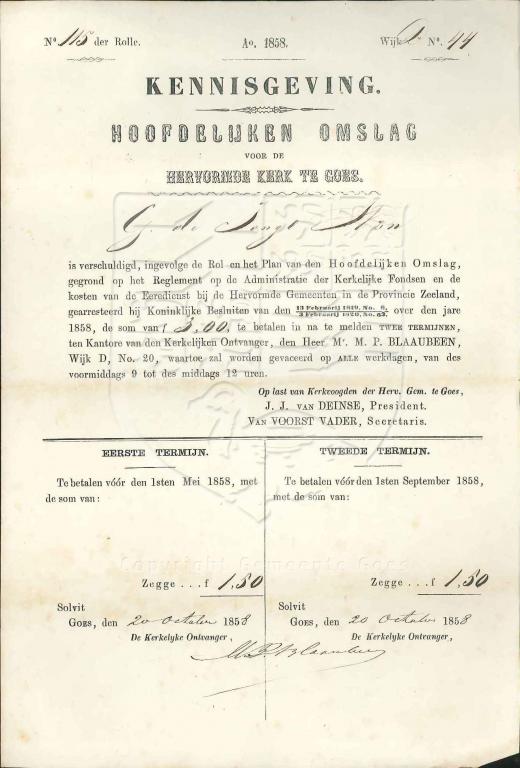 No 115 der Rolle. Ao. 1858. Wijk D No. 44
KENNISGEVING.
HOOFDELIJKEN OMSLAG
VOOR DE
HERVORMDE KERK TE GOES.
G. de Jongh
is verschuldigd, ingevolge de Rol en het Plan van den Hoofdelijken Omslag,
gegrond op het Reglement op de Administratie der Kerkelijke Fondsen en de
kosten van de Eeredienst bij de Hervormde Gemeenten in de Provincie Zeeland,
gearresteerd bij Koninklijke Besluiten van den 13 Februarij 1819, No. 6, 3 Februarij 1820, No. 63, over den jare
1858, de som van f 3,00, te betalen in na te melden TWEE TERMIJNEN,
ten Kantore van den Kerkelijken Ontvanger, den Heer Mr. M. P. BLAAUBEEN,
Wijk D, No. 20, waartoe zal worden gevaceerd op ALLE werkdagen, van des
voormiddags 9 tot des middags 12 uren.
Op last van Kerkvoogden der Herv. Gem. te Goes,
J. J. VAN DEINSE, President.
VAN VOORST VADER, Secretaris.
EERSTE TERMIJN.
Te betalen vóór den 1sten Mei 1858, met
de som van:
Zegge . . . f 1,50
Solvit
GOES, den 20 October 1858
De Kerkelyke Ontvanger,
TWEEDE TERMIJN.
Te betalen vóór den 1sten September 1858,
met de som van:
Zegge . . . f 1,50
Solvit
GOES, den 20 October 1858
De Kerkelyke Ontvanger,
M. P. Blaaubeen
Copyright Gemeente Goes